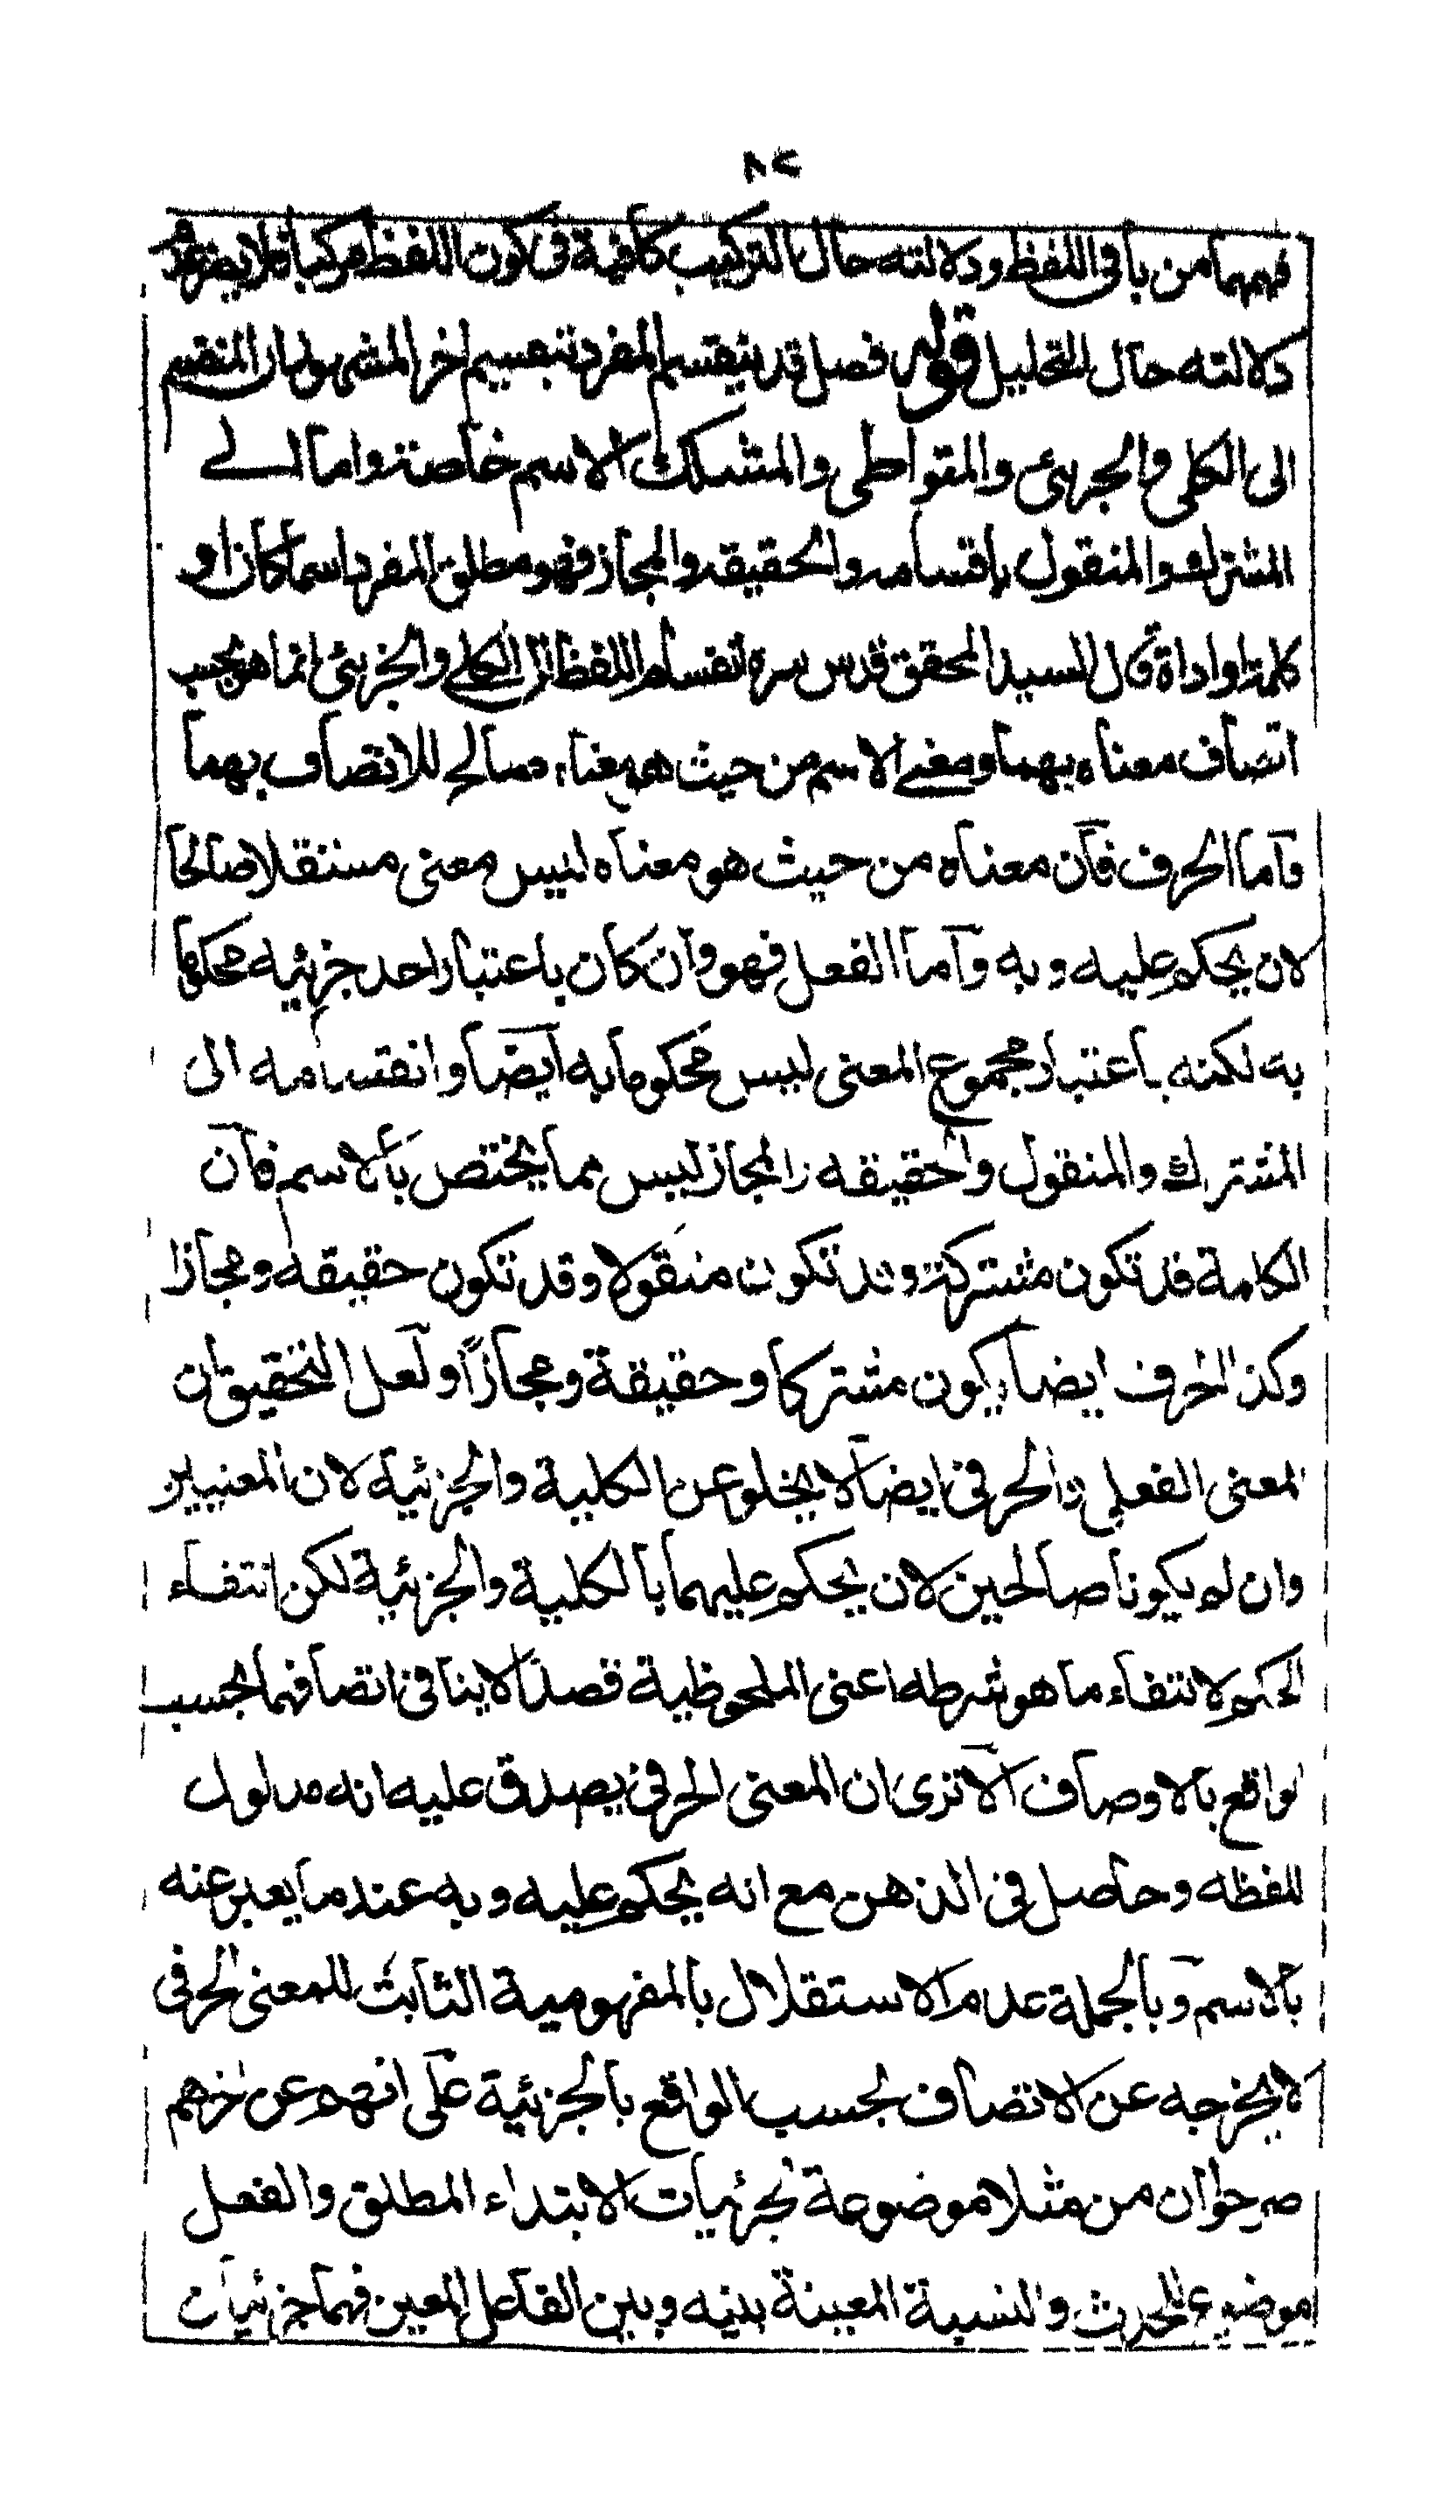 ٨٢
فهمهما من باقى اللفظ ودلالته حال التركيب كافية فى كون اللفظ مركبا فلا يضر
دلالته حال التحليل قوله فصل قد ينقسم المفرد بتقسيم اخر المشهور ان المنقسم
الى الكلى والجزئى والمتواطى والمشكك الاسم خاصة واما الے
المشترك والمنقول باقسامه والحقيقه والمجاز فهو مطلق المفرد اسما كان او
كلمة او اداة قال السيد المحقق قدس سره انقسام اللفظ الى الكلے والجزئى انما هو بحسب
اتصاف معناه بهما ومعنے الاسم من حيث هو معناه صالح للاتصاف بهما
واما الحرف فان معناه من حيث هو معناه ليس معنى مستقلا صالحا
لان يحكم عليه وبه واما الفعل فهو وان كان باعتبار احد جزئيه محكوما
به لكنه باعتبار مجموع المعنى ليس محكوما به ايضا وانقسامه الى
المشترك والمنقول والحقيقه والمجاز ليس مما يختص بالاسم فان
الكلمة قد تكون مشتركة وقد تكون منقولا وقد تكون حقيقه ومجازا
وكذا الحرف ايضا يكون مشتركا وحقيقة ومجازاً ولعل التحقيق ان
المعنى الفعلى والحرفى ايضا لا يخلو عن الكلية والجزئية لان المعنيين
وان لم يكونا صالحين لان يحكم عليهما بالكلية والجزئية لكن انتفاء
الحكم لانتفاء ما هو شرطه اعنى الملحوظية قصداً لا ينافى اتصافهما بحسب
الواقع بالاوصاف الا ترى ان المعنى الحرفى يصدق عليه انه مدلول
للفظه وحاصل فى الذهن مع انه يحكم عليه وبه عند ما يعبر عنه
بالاسم وبالجملة عدم الاستقلال بالمفهومية الثابت للمعنى الحرفى
لا يخرجه عن الاتصاف بحسب الواقع بالجزئية على انهم عن اخرهم
صرحوا ان من مثلا موضوعة لجزئيات الابتداء المطلق والفعل
موضوع للحدث والنسبة المعينة بينه وبين الفاعل المعين فهما جزئيان